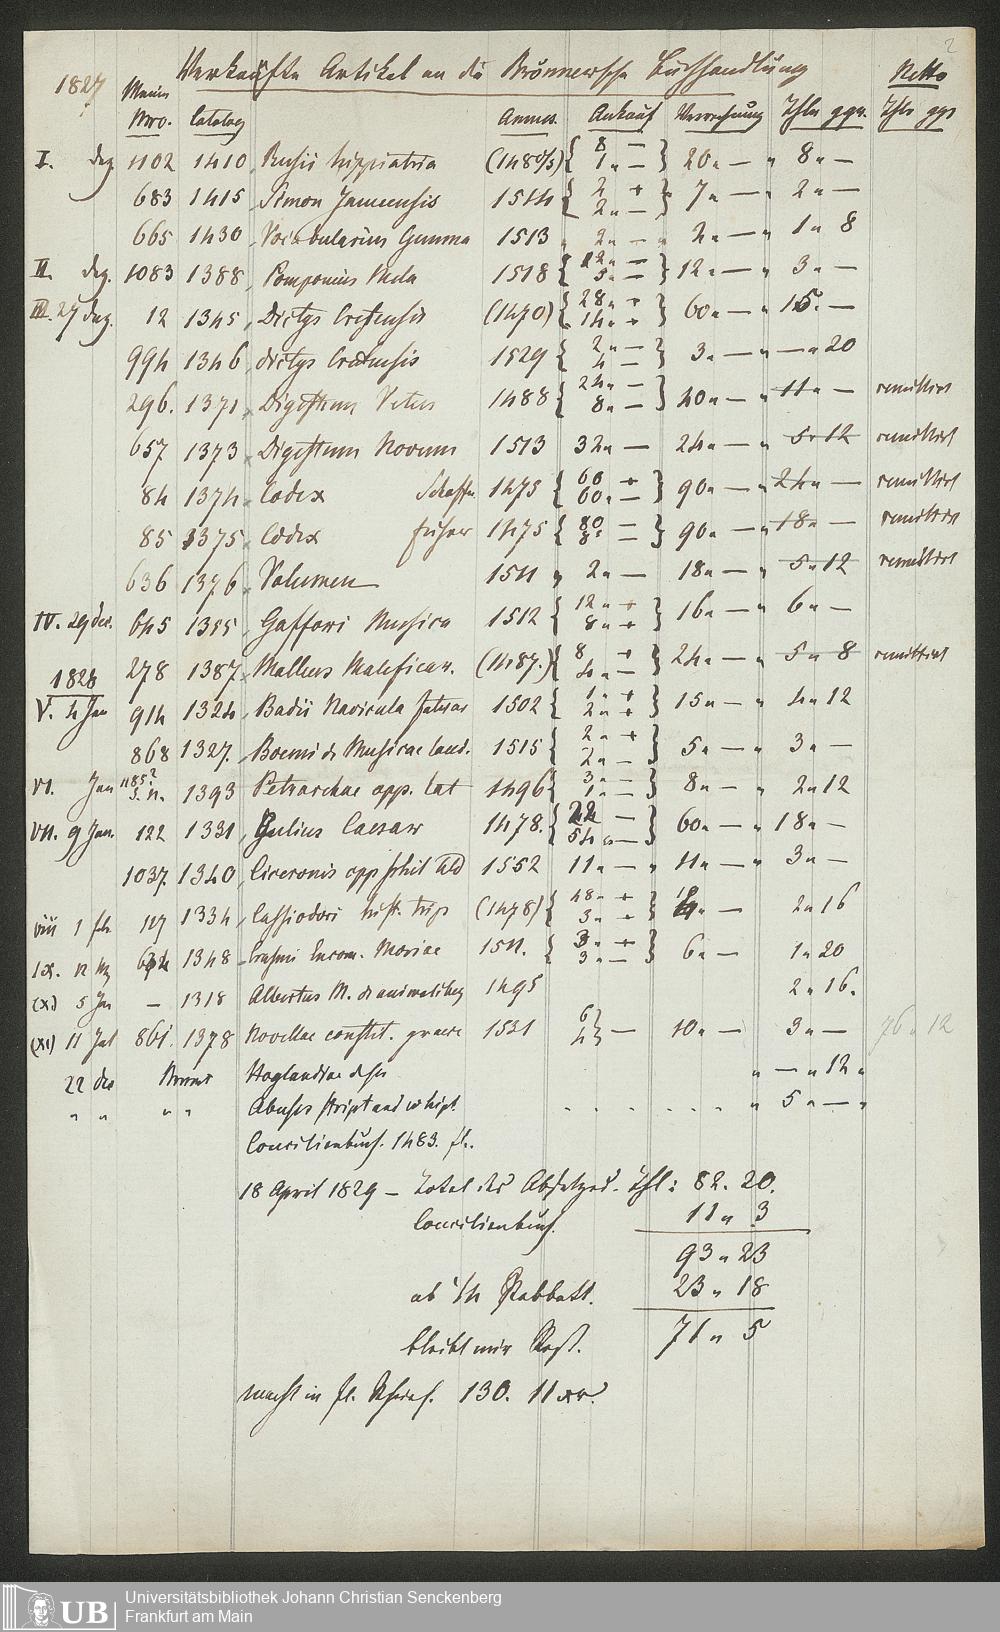 2
1827 Verkaufte Artikel an die Brönnersche Buchhandlung Netto
Meine Nro. Catalog Annus. Ankauf Thlr ggr. Thlr ggr
I. dez 1102 1410 Rusii hippiatria { 8 — 1 „ — } 20 „ — „ 8 „ —
683 1415 Simon Januensis 1514 { 2 + 2 „ — } 7 „ — „ 2 „ —
665 1430 Vocabularius Gemma 1513 „ 2 „ — „ 2 „ — „ 1 „ 8
II. dez. 1083 1388 Pomponius Mela 1518 { 12 „ — 5 „ — } 12 „ — „ 3 „ —
III. 27 dez. 12 1345 Dictys Cretensis (1470) { 28 „ + 14 „ + } 60 „ — „ 15 „ —
994 1346 Dictys Cretensis 1529 { 2 „ — 4 — } 3 „ — „ — „ 20
296. 1371 Digestum Vetus 1488 { 24 „ — 8 „ — } 40 „ — „ 11 „ — remittirt
657 1373 Digestum Novum 1513 32 „ — 24 „ — „ 5 „ 12 remittirt
84 1374 Codex Schoffer 1475 { 60 + 60 „ — } 90 „ — „ 24 „ — remittirt
85 1375 Codex 1475 { 80 — 8 „ — } 90 „ — „ 18 „ — remittirt
636 1376 Volumen 1511 „ 2 „ — 18 „ — „ 5 „ 12 remittirt
IV. 29 dec. 645 1355 Gaffori Musica 1512 { 12 „ + 8 „ + } 16 „ — „ 6 „ —
1828 278 1387 Malleus Maleficar. (1487.) { 8 + 4 „ — } 24 „ — „ 5 „ 8 remittirt
V. 4 Jan 914 1324 Badii Navicula fatuar 1502 { 1 „ + 2 „ + } 15 „ — „ 4 „ 12
868 1327. Boemi de Musicae laud. 1515 { 2 „ + 2 „ — } 5 „ — „ 3 „ —
VI. Jan 1185? S. n. 1393 Petrarchae opp. lat 1496 { 3 „ — 1 „ — } 8 „ — 2 „ 12
VII. 9 Jan. 122 1331 Julius Caesar 1478. { 22 — 54 „ — } 60 „ — „ 18 „ —
1037. 1340 Ciceronis opp phil Ald 1552 11 „ — „ 11 „ — „ 3 „ —
VIII 1 feb 117 1334 Cassiodori hist. trip (1478) { 48 „ + 3 „ + } „ — 2 „ 16
IX. 1348 Erasmi Encom. Moriae 1511. { 3 „ + 3 „ — } 6 „ — 1 „ 20
(X) 5 — 1318 Albertus M. de animalibus 1495 2 „ 16.
(XI) 11 Jul 861. 1378 Novellae constit. graece 1531 6 4 } — 10 „ — 3 „ — 76 „ 12
22 dec Hoglandiae „ — „ 12 „
„ „ „ „ Abuses stript and whipt . . . . . . „ 5 „ — „
Concilienbuch. 1483. fl.
18 April 1829 — Total des Absatzes. Thl: 82. 20.
Concilienbuch. 11 „ 3
93 „ 23
ab 1/4 Rabbatt. 23 „ 18
bleibt mir Rest. 71 „ 5
macht in fl. 130. 11 xr.
UB
Universitätsbibliothek Johann Christian Senckenberg
Frankfurt am Main